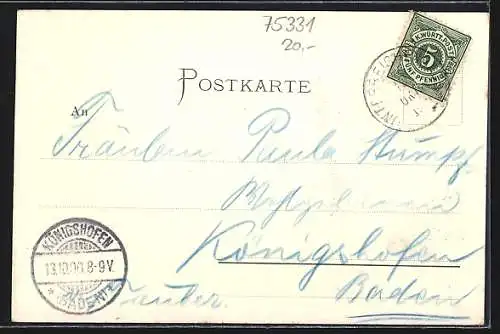 75331
20,-
K. WÜRTT. POST
5
FÜNF PFENNIG
POSTKARTE
An
Fräulein Paula Stumpf
Königshofen
KÖNIGSHOFEN
13.10.00. 8-9V.
* (BADEN) *
Tauber.
Baden